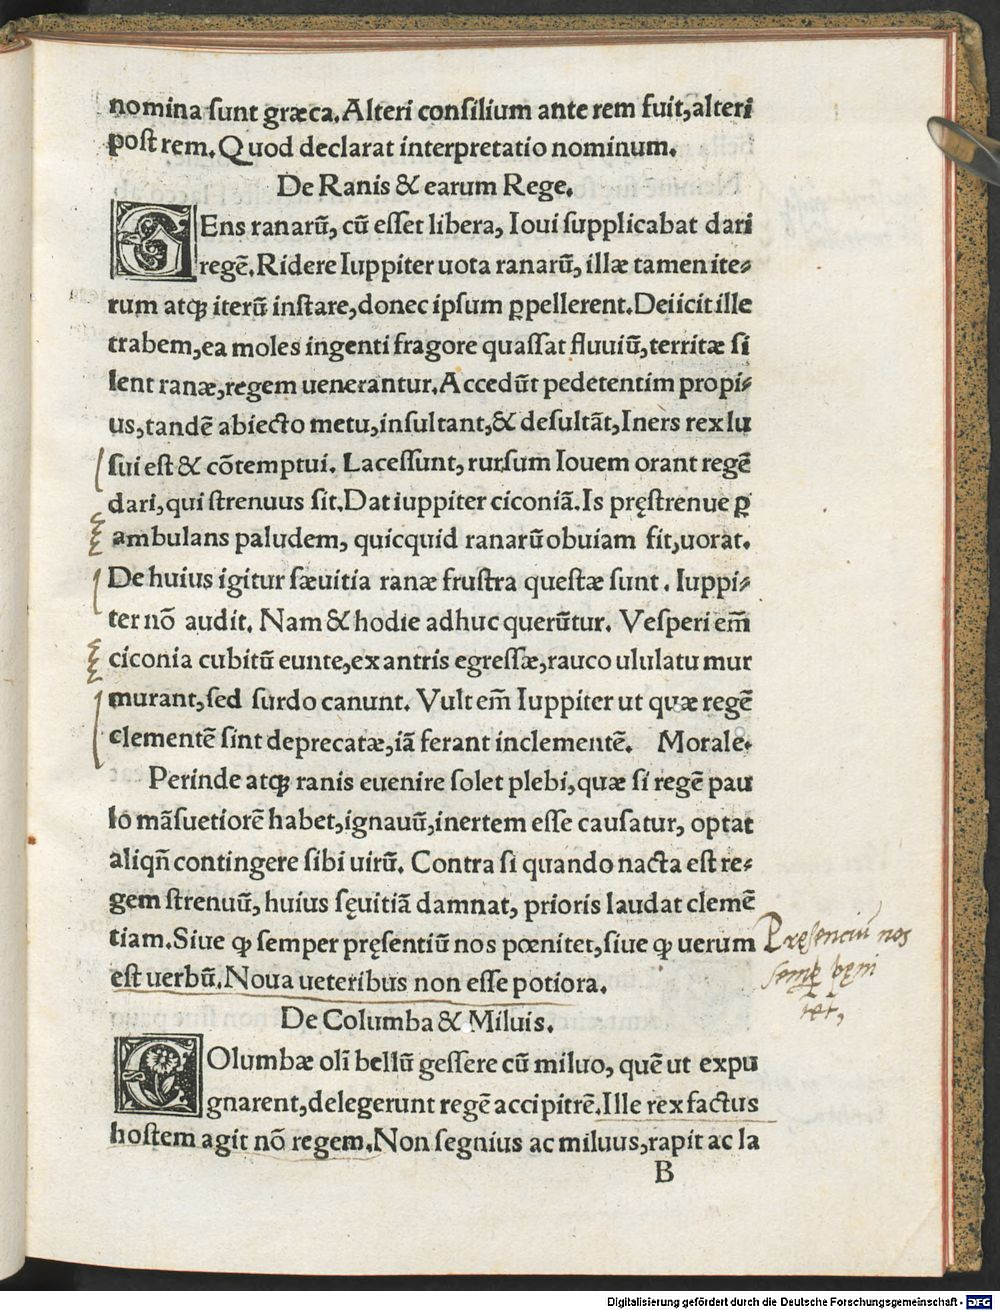 nomina sunt græca. Alteri consilium ante rem fuit, alteri
post rem. Quod declarat interpretatio nominum.
De Ranis & earum Rege.
GEns ranarū, cū esset libera, Ioui supplicabat dari
regē. Ridere Iuppiter uota ranarū, illæ tamen ite-
rum atqꝫ iterū instare, donec ipsum ꝑpellerent. Deiicit ille
trabem, ea moles ingenti fragore quassat fluuiū, territæ si
lent ranæ, regem uenerantur. Accedūt pedetentim propi-
us, tandē abiecto metu, insultant, & desultāt, Iners rex lu
sui est & cōtemptui. Lacessunt, rursum Iouem orant regē
dari, qui strenuus sit. Dat iuppiter ciconiā. Is pręstrenue ꝑ
ambulans paludem, quicquid ranarū obuiam fit, uorat.
De huius igitur sæuitia ranæ frustra questæ sunt. Iuppi-
ter nō audit. Nam & hodie adhuc querūtur. Vesperi em̄
ciconia cubitū eunte, ex antris egressæ, rauco ululatu mur
murant, sed surdo canunt. Vult em̄ Iuppiter ut quæ regē
clementē sint deprecatæ, iā ferant inclementē. Morale.
Perinde atqꝫ ranis euenire solet plebi, quæ si regē pau
lo māsuetiorē habet, ignauū, inertem esse causatur, optat
aliqn̄ contingere sibi uirū. Contra si quando nacta est re-
gem strenuū, huius sęuitiā damnat, prioris laudat clemē
tiam. Siue ꝙ semper pręsentiū nos pœnitet, siue ꝙ uerum
est uerbū. Noua ueteribus non esse potiora.
Pręsenciū nos
semꝑ pęni
tet,
De Columba & Miluis.
COlumbæ oli̅ bellū gessere cū miluo, quē ut expu
gnarent, delegerunt regē accipitrē. Ille rex factus
hostem agit nō regem. Non segnius ac miluus, rapit ac la
B
Digitalisierung gefördert durch die Deutsche Forschungsgemeinschaft - DFG